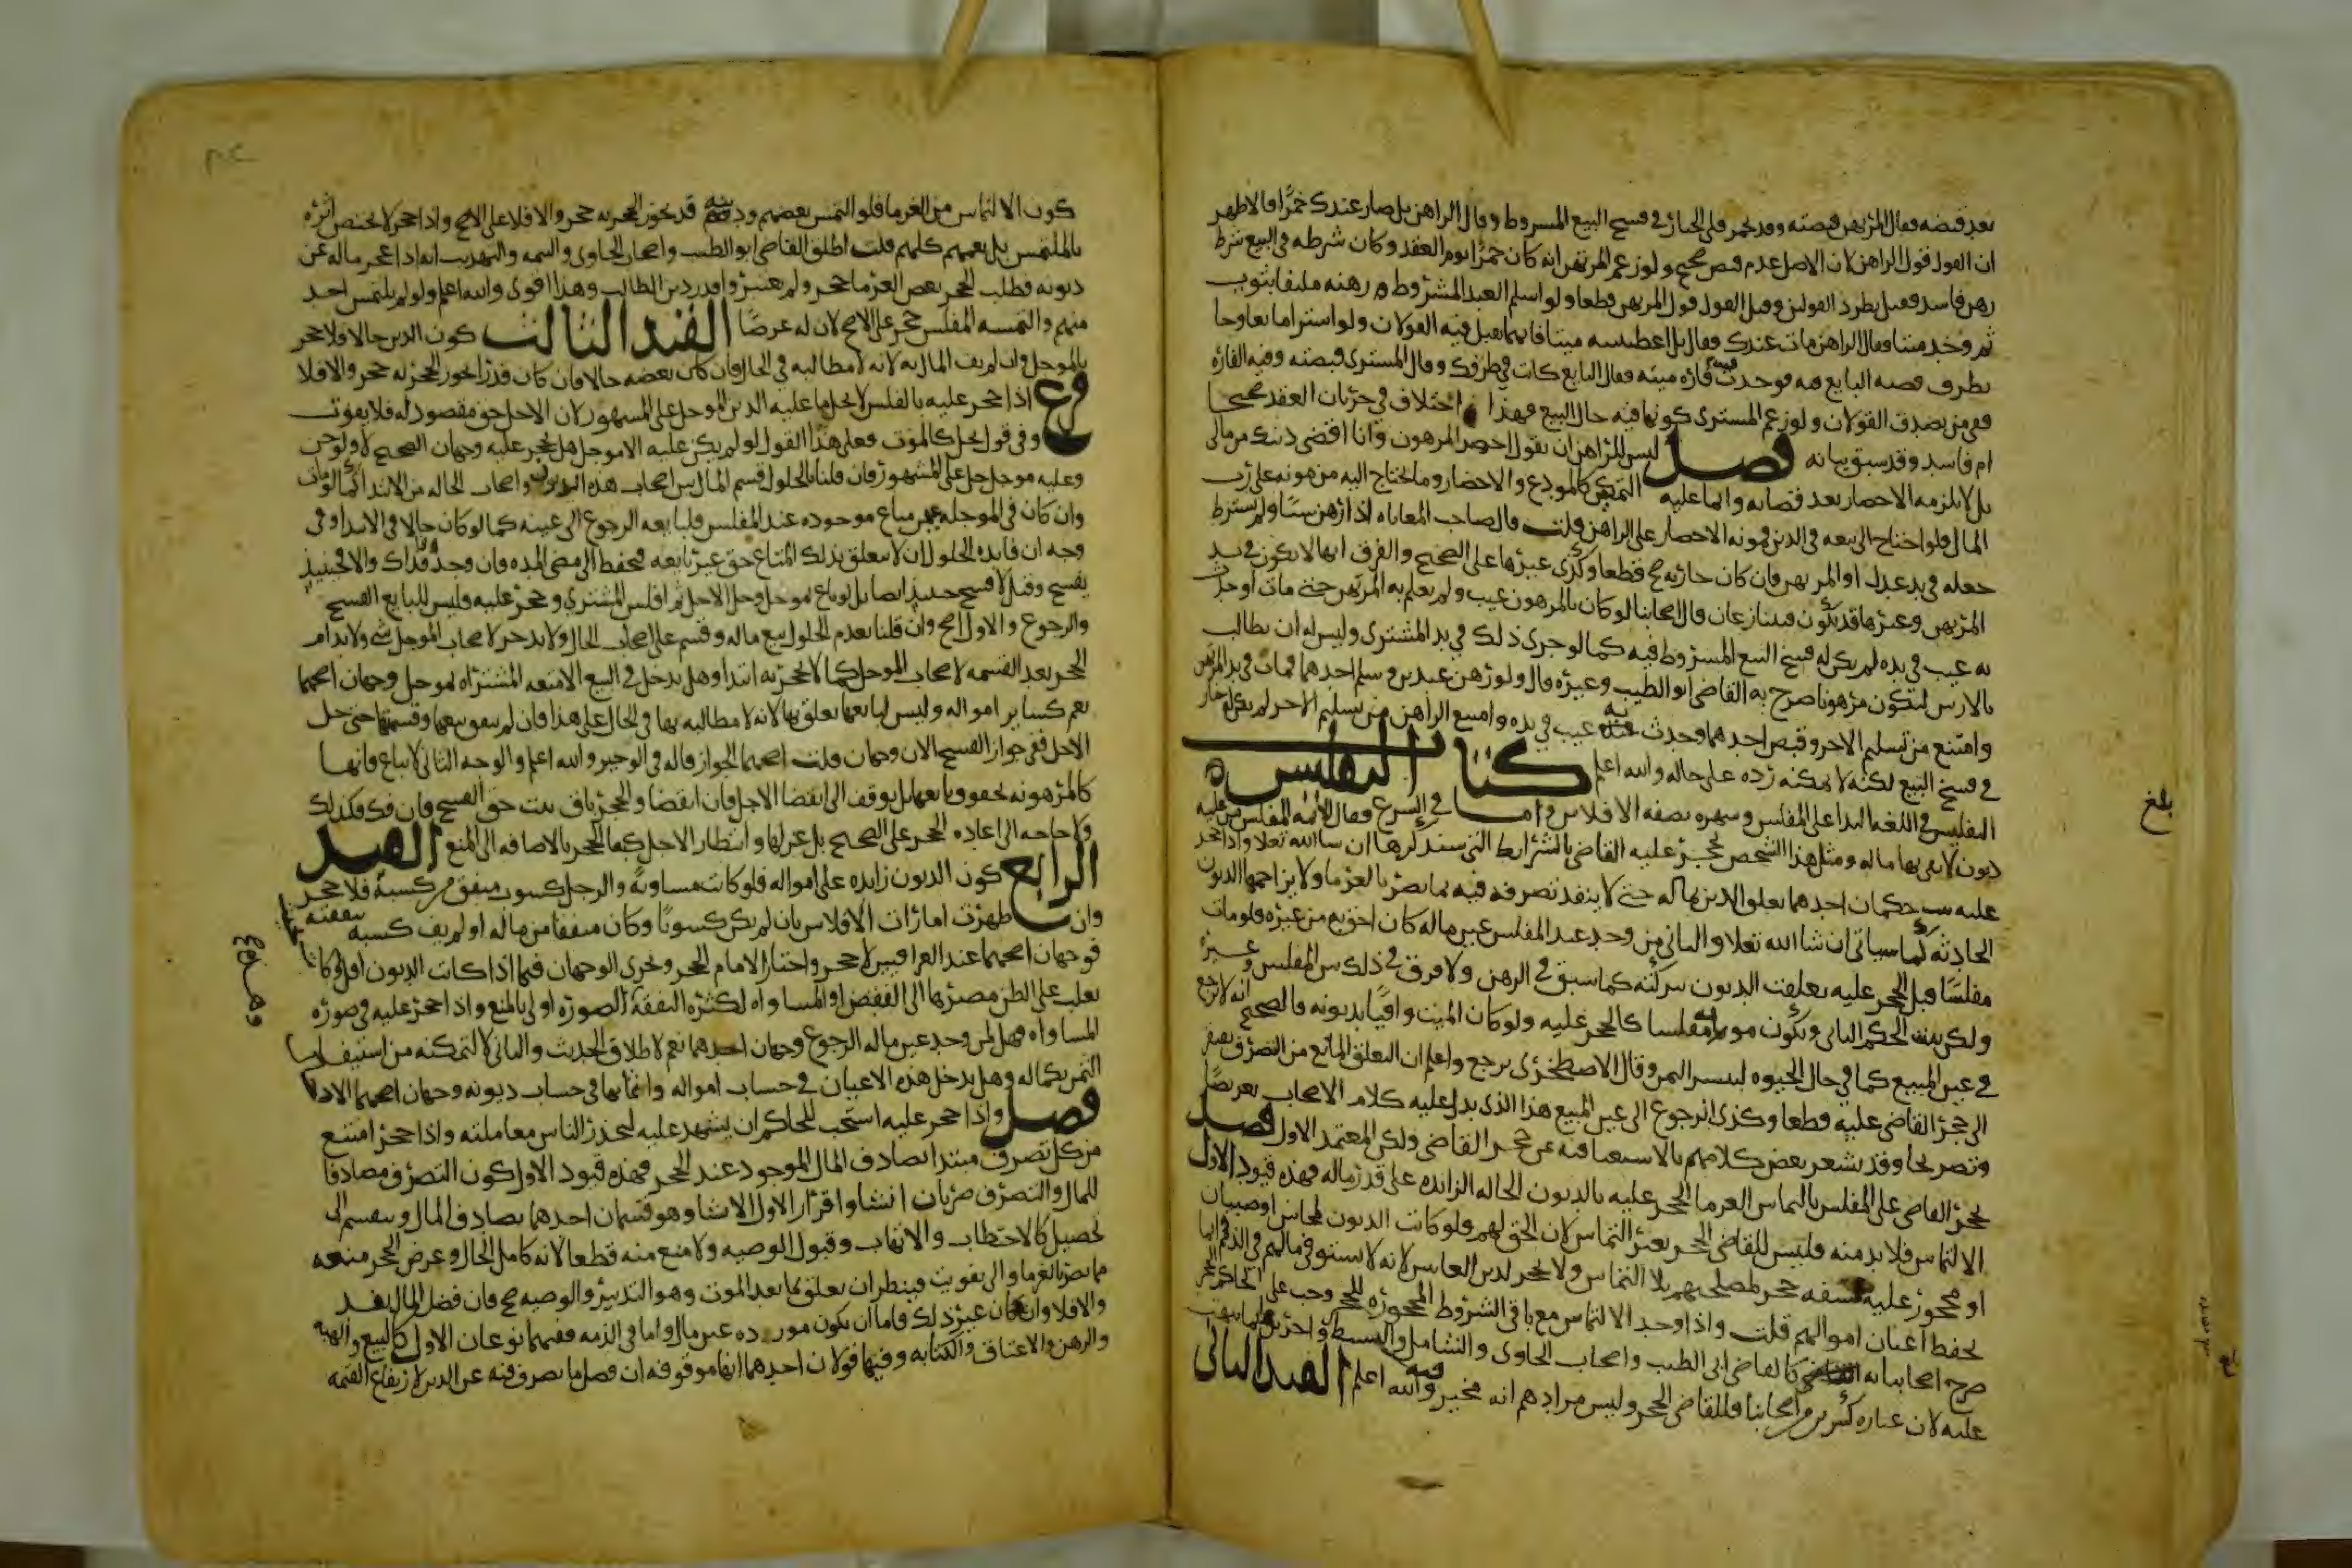 بعد قبضه فقال المرتهن قبضته وقد تخمر فلي الخيار في فسخ البيع المشروط وقال الراهن بل صار عندك خمرا فالاظهر
ان القول قول الراهن لان الاصل عدم قبض صحيح ولو زعم المرتهن انه كان خمرا يوم العقد وكان شرطه في البيع شرط
رهن فاسد فقيل بطرد القولين وقيل القول قول المرتهن قطعا ولو اسلم العبد المشروط رهنه ملتفا بثوب
ثم وجد ميتا وقال الراهن مات عندك وقال بل اعطيتنيه ميتا فايهما يقبل فيه القولان ولو اشترا مايعا وجا
بظرف فصبه البايع فيه فوجدت فيه فارة ميتة فقال البايع كانت في ظرفك وقال المشتري قبضته وفيه الفارة
ففي من يصدق القولان ولو زعم المشتري كونها فيه حال البيع فهذا اختلاف في جريان العقد صحيحا
ام فاسد وقد سبق بيانه فصل ليس للراهن ان يقول احضر المرهون وانا اقضي دينك من مالي
بل لا يلزمه الاحضار بعد قضائه وانما عليه التمكين كالمودع والاحضار وما يحتاج اليه من مونه على رب
المال فلو احتاج الى بيعه في الدين فمونة الاحضار على الراهن قلت قال صاحب المعاياه اذا رهن شيا ولم يشترط
جعله في يد عدل او المرتهن فان كان جارية صح قطعا وكذى غيرها على الصحيح والفرق انها لا تكون في يد
المرتهن وغيرها قد يكون فيتنازعان قال اصحابنا لو كان بالمرهون عيب ولم يعلم به المرتهن حتى مات او حدث
به عيب في يده لم يكن له فسخ البيع المشروط فيه كما لو جرى ذلك في يد المشتري وليس له ان يطالب
بالارش ليكون مرهونا صرح به القاضي ابو الطيب وغيره قال ولو رهن عبدين وسلم احدهما فمات في يد المرتهن
وامتنع من تسليم الاخر وقبض احدهما وحدث به عيب في يده وامتنع الراهن من تسليم الاخر لم يكن له خيار
في فسخ البيع لكنه لا يمكنه رده على حاله والله اعلم كتاب التفليس
التفليس في اللغة الندا على المفلس وشهره بصفة الافلاس واما في الشرع فقال الايمه المفلس من عليه
ديون لا يفي بها ماله ومثل هذا الشخص يحجر عليه القاضي بالشرايط التي سنذكرها ان شا الله تعلا واذا حجر
عليه ثبت حكمان احدهما تعلق الدين بماله حتى لا ينفذ تصرفه فيه بما يضر بالغرما ولا يزاحمها الديون
الحادثه كما سياتي ان شا الله تعلا والثاني من وجد عند المفلس عين ماله كان احق به من غيره فلو مات
مفلسا قبل الحجر عليه تعلقت الديون بتركته كما سبق في الرهن ولا فرق في ذلك بين المفلس وغيره
ولكن يثبت الحكم الثاني ويكون موته مفلسا كالحجر عليه ولو كان الميت وافيا بديونه فالصحيح انه لا يرجع
في عين المبيع كما في حال الحيوه لتيسر الثمن وقال الاصطخرى يرجع واعلم ان التعلق المانع من التصرف يفتقر
الى حجر القاضي عليه قطعا وكذى الرجوع الى عين المبيع هذا الذي يدل عليه كلام الاصحاب تعريضا
وتصريحا وقد يشعر بعض كلامهم بالاستغنا فيه عن حجر القاضي ولكن المعتمد الاول فصل
يحجر القاضي على المفلس بالتماس الغرما الحجر عليه بالديون الحاله الزايده على قدر ماله فهذه قيود الاول
الالتماس فلا بد منه فليس للقاضي الحجر بغير التماس لان الحق لهم فلو كانت الديون لمجانين او صبيان
او محجور عليه بسفه حجر لمصلحتهم بلا التماس ولا يحجر لدين الغايبين لانه لا يستوفي ما لهم في الذمم انما
يحفظ اعيان اموالهم قلت واذا وجد الالتماس مع باقي الشروط المجوزه للحجر وجب على الحاكم الحجر
صرح اصحابنا به كالقاضي ابي الطيب واصحاب الحاوى والشامل والبسيط واخرين
عليه لان عباره كثيرين من اصحابنا فللقاضي الحجر وليس مرادهم انه مخير فيه والله اعلم القيد الثاني
بلغ
كون الالتماس من الغرما فلو التمس بعضهم ودينه قدر يجوز الحجر به حجر والا فلا على الاصح واذا حجر لا يختص اثره
بالملتمس بل يعمهم كلهم قلت اطلق القاضي ابو الطيب واصحاب الحاوى والتتمه والتهذيب انه اذا عجز ماله عن
ديونه فطلب الحجر بعض الغرما حجر ولم يعتبروا قدر دين الطالب وهذا اقوى والله اعلم ولو لم يلتمس احد
منهم والتمسه المفلس حجر على الاصح لان له غرضا القيد الثالث كون الدين حالا فلا حجر
بالموجل وان لم يف المال به لانه لا مطالبه في الحال فان كان بعضه حالا فان كان قدرا يجوز الحجر له حجر والا فلا
فرع اذا حجر عليه بالفلس لا يحل ما عليه الدين الموجل على المشهور لان الاجل حق مقصود له فلا يفوت
وفي قول يحل كالموت فعلى هذا القول لو لم يكن عليه الا موجل هل يحجر عليه وجهان الصحيح لا ولو جن
وعليه موجل حل على المشهور فان قلنا بالحلول قسم المال بين اصحاب هذه الديون واصحاب الحاله من الابتدا كما لو مات
وان كان في الموجله ثمن مباع موجوده عند المفلس فلبايعه الرجوع الى عينه كما لو كان حالا في الابتدا وفي
وجه ان فايده الحلول ان لا يتعلق بذلك المتاع حق غير بايعه فيحفظ الى مضي المده فان وجد وفا فذاك والا فحينيذ
يفسخ وقيل لا فسخ حينيذ ايضا بل لو باع بموجل وحل الاجل ثم افلس المشتري وحجر عليه فليس للبايع الفسخ
والرجوع والاول اصح وان قلنا بعدم الحلول بيع ماله وقسم على اصحاب الحال ولا يدخر لاصحاب الموجل شي ولا يدام
الحجر بعد القسمه لاصحاب الموجل كما لا يحجر به ابتدا وهل يدخل في البيع الامتعه المشتراه بموجل وجهان اصحهما
نعم كساير امواله وليس لبايعها تعلق بها لانه لا مطالبه بها في الحال على هذا فان لم يتفق بيعها وقسمتها حتى حل
الاجل ففي جواز الفسخ الان وجهان قلت اصحهما الجواز قاله في الوجيز والله اعلم والوجه الثاني لا تباع فانها
كالمرهونه بحقوق بايعها بل توقف الى انقضا الاجل فان انقضا والحجر باق ثبت حق الفسخ وان فك فكذلك
ولا حاجه الى اعاده الحجر على الصحيح بل عزلها وانتظار الاجل كبقا الحجر بالاضافه الى المبيع القيد
الرابع كون الديون زايده على امواله فلو كانت مساوية والرجل كسوب ينفق من كسبه فلا حجر
وان ظهرت امارات الافلاس بان لم يكن كسوبا وكان ينفق من ماله او لم يف كسبه بنفقته
فوجهان اصحهما عند العراقيين لا حجر واختار الامام الحجر ويجرى الوجهان فيما اذا كانت الديون اقل وكانت
يغلب على الظن مصيرها الى النقص او المساواه لكثره النفقة وهذه الصوره اولى بالمنع واذا حجر عليه في صوره
المساواه فهل لمن وجد عين ماله الرجوع وجهان احدهما نعم لاطلاق الحديث والثاني لا لتمكنه من استيفا
الثمن بكماله وهل يدخل هذه الاعيان في حساب امواله واثمانها في حساب ديونه وجهان اصحهما الادخال
فصل واذا حجر عليه استحب للحاكم ان يشهد عليه ليحذر الناس معاملته واذا حجر امتنع
من كل تصرف مبتدا يصادف المال الموجود عند الحجر فهذه قيود الاول كون التصرف مصادفا
للمال والتصرف ضربان انشا واقرار الاول الانشا وهو قسمان احدهما يصادف المال وينقسم الى
تحصيل كالاحتطاب والاتهاب وقبول الوصيه ولا منع منه قطعا لانه كامل الحال وغرض الحجر منعه
مما يضر بالغرما والى تفويت فينظر ان تعلق بما بعد الموت وهو التدبير والوصيه صح فان فضل المال نفذ
والا فلا وان كان غير ذلك فاما ان يكون مورده عين مال واما في الذمه ففيهما نوعان الاول كالبيع والهبه
والرهن والاعتاق والكتابه وفيها قولان احدهما انها موقوفه ان فضل ما يصرف فيه عن الدين لارتفاع القيمه